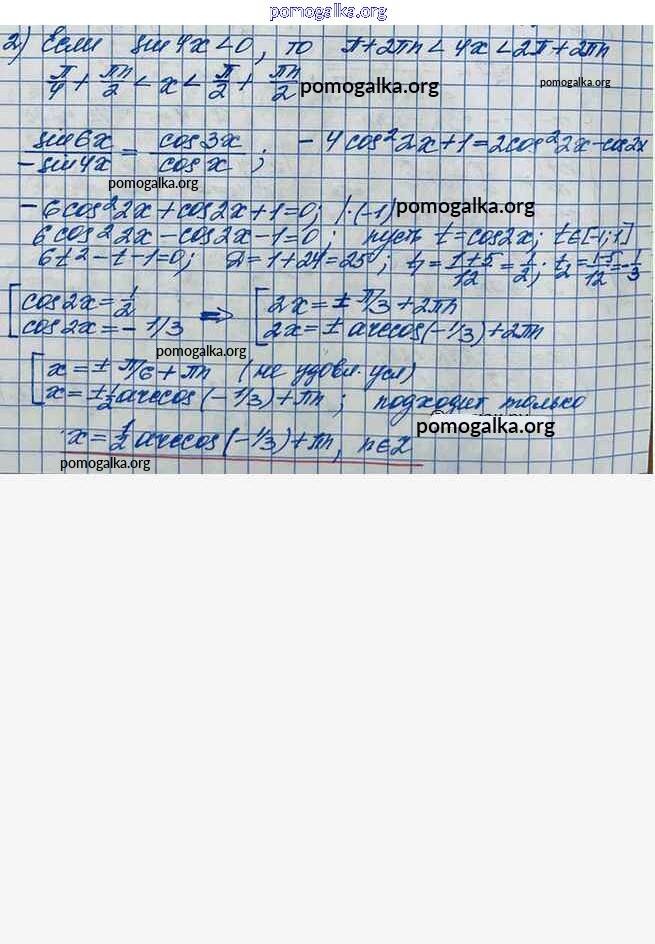 pomogalka.org
2) Если sin4x<0, то π+2πn<4x<2π+2πn
π/4+πn/2<x<π/2+πn/2 pomogalka.org pomogalka.org
sin6x/-sin4x=cos3x/cosx; -4cos²2x+1=2cos²2x-cos2x
pomogalka.org
-6cos²2x+cos2x+1=0; /·(-1) pomogalka.org
6cos²2x-cos2x-1=0; пусть t=cos2x; t∈[-1;1]
6t²-t-1=0; D=1+24=25; t₁=1+5/12=1/2; t₂=1-5/12=-1/3
[cos2x=1/2 => [2x=±π/3+2πn
cos2x=-1/3 2x=±arccos(-1/3)+2πn
pomogalka.org
[x=±π/6+πn (не удовл. усл)
x=±1/2arccos(-1/3)+πn; подходит только
pomogalka.org
x=1/2arccos(-1/3)+πn, n∈Z
pomogalka.org